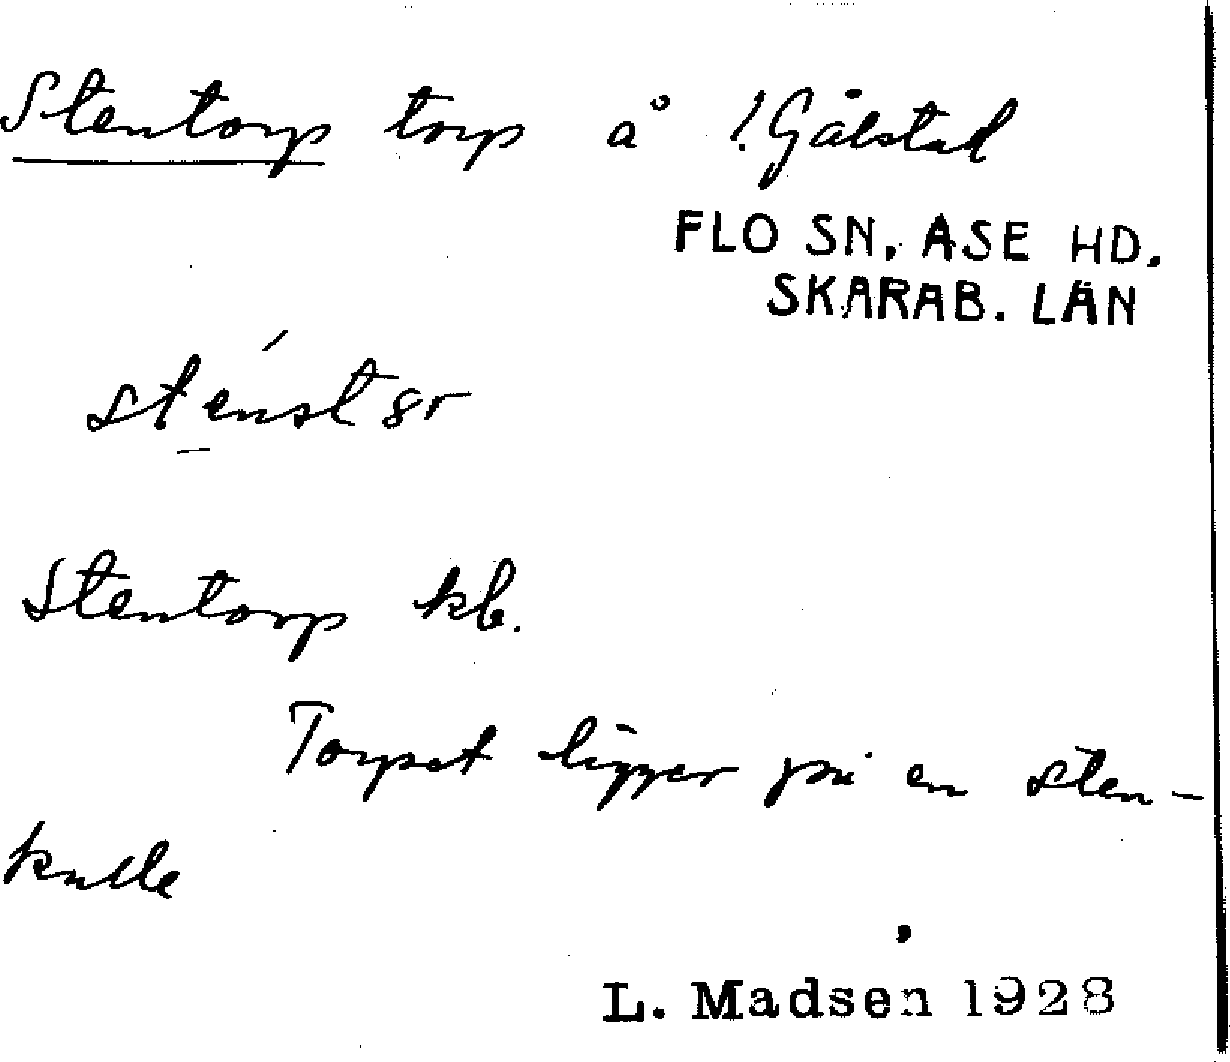 Stentorp torp å ! Gålstad
FLO SN, ÅSE HD.
SKARAB. LÄN
Stentorp kb.
Torpet ligger på en sten-
kulle
L. Madsen 1928